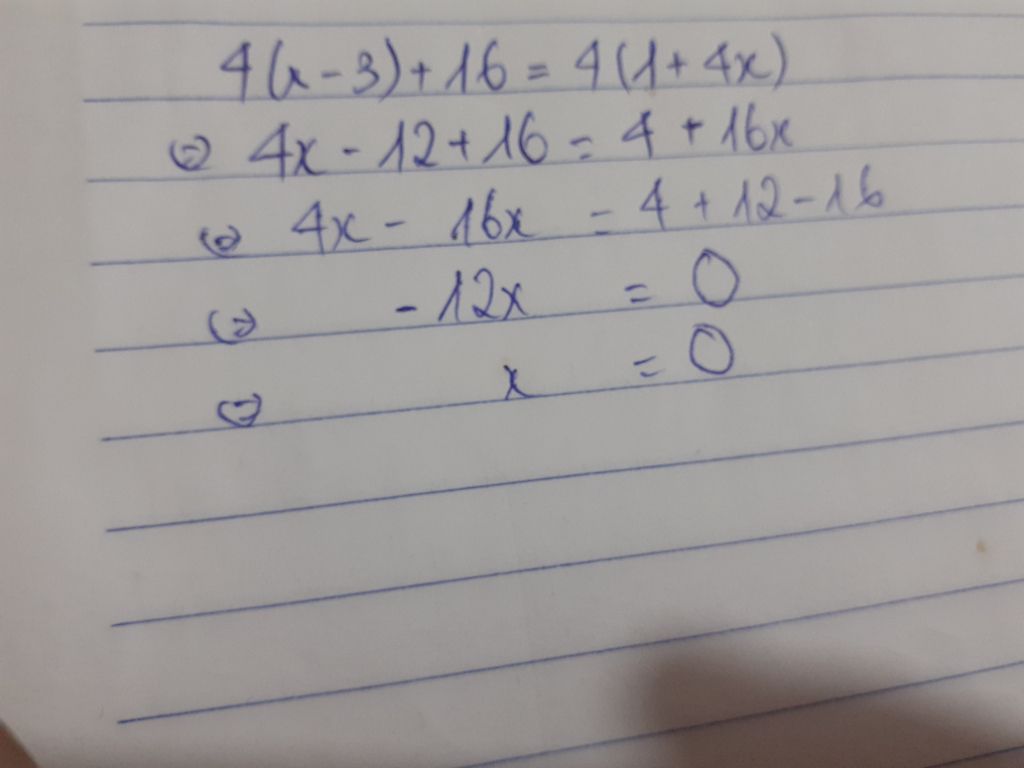 4(x-3)+16 = 4(1+4x)
⇔ 4x - 12 + 16 = 4 + 16x
⇔ 4x - 16x = 4 + 12 - 16
⇔ -12x = 0
⇔ x = 0